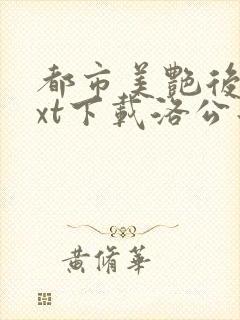 都市美艷後
xt下載洛公
黄脩華